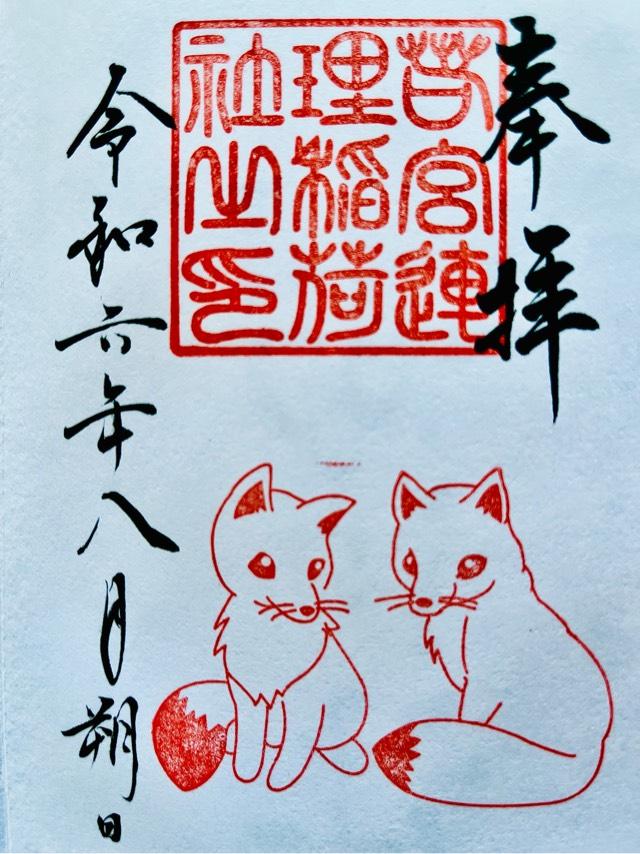 奉拝
若宮連
理稲荷
社之印
令和六年八月朔日